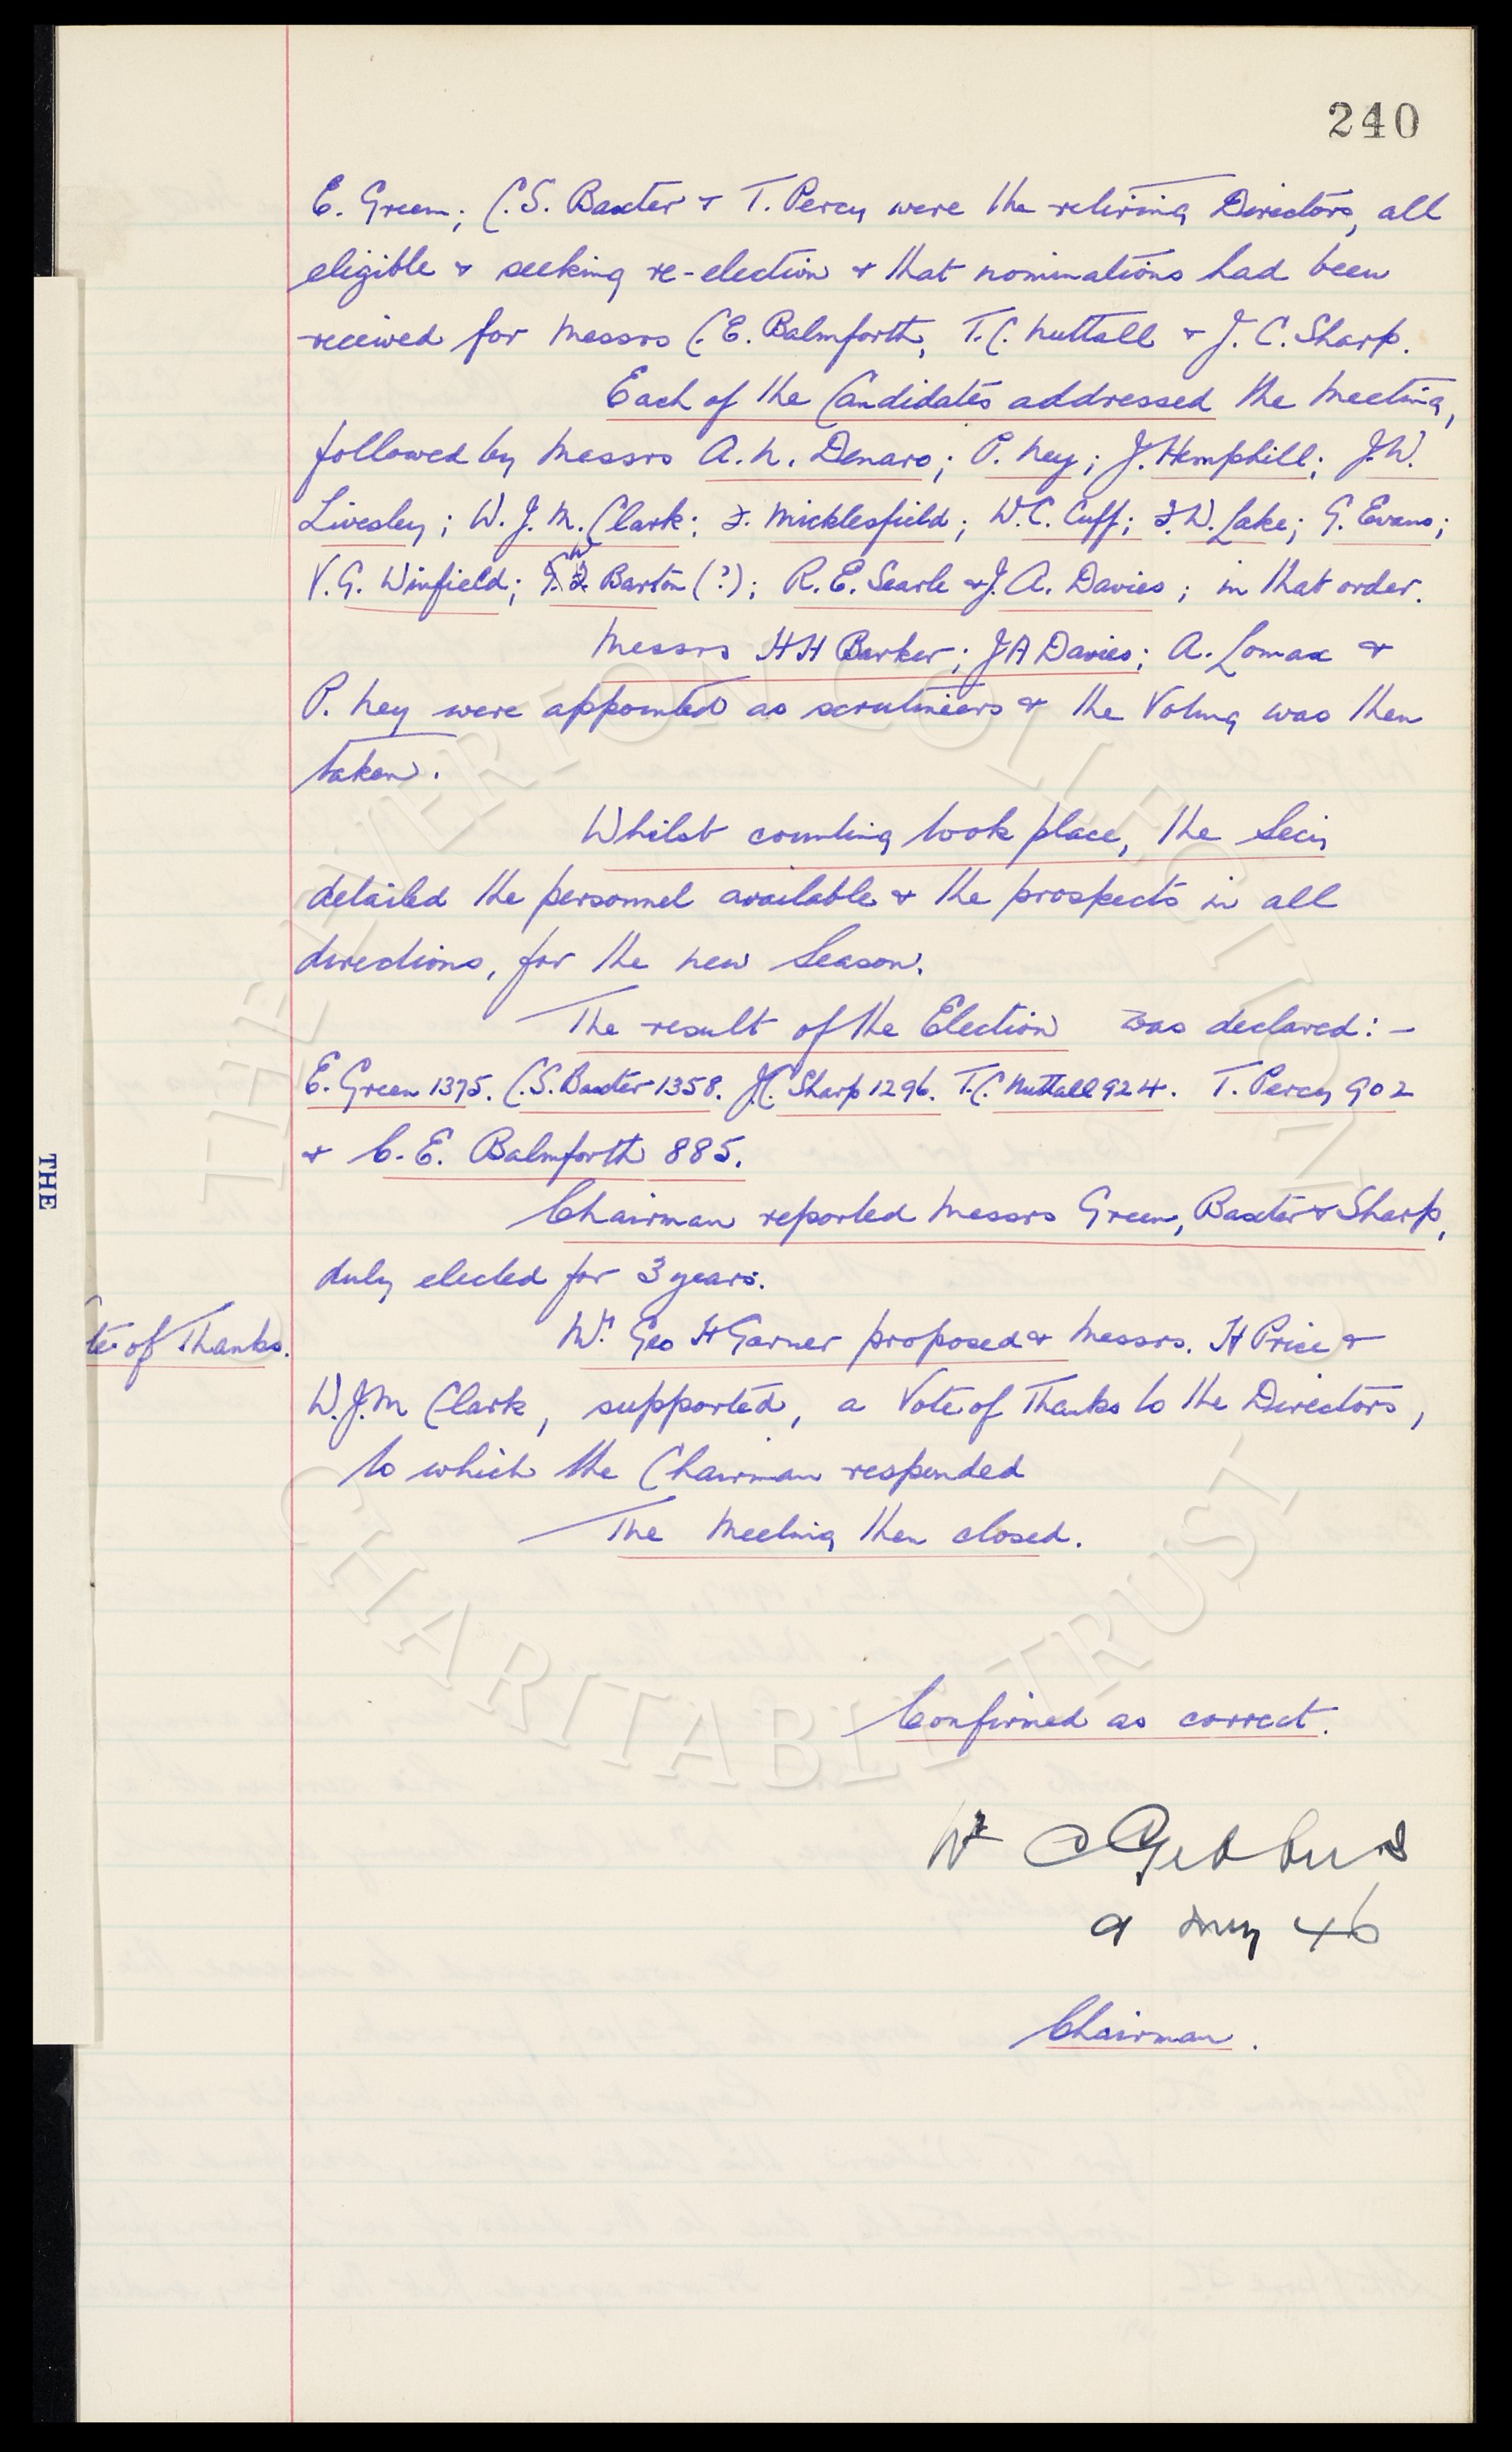 240
E. Green; C.S. Baxter & T. Percy were the retiring Directors, all
eligible & seeking re-election & that nominations had been
received for Messrs C.E. Balmforth, T.C. Nuttall & J.C. Sharp.
Each of the Candidates addressed the Meeting,
followed by Messrs A.N. Denaro; P. Ney; J. Hemphill; J.W.
Livesley; W.J.M. Clark; F. Micklesfield; W.C. Cuff; F.W. Lake; G. Evans;
V.G. Winfield; W Barton (?); R.E. Searle & J.A. Davies; in that order.
Messrs H H Barker; J A Davies; A. Lomax &
P. Ney were appointed as scrutineers & the Voting was then
taken.
Whilst counting took place, the Secy
detailed the personnel available & the prospects in all
directions, for the new Season.
The result of the Election was declared:-
E. Green 1375. C.S. Baxter 1358. J.C. Sharp 1296. T.C. Nuttall 924. T. Percy 902
& C.E. Balmforth 885.
Chairman reported Messrs Green, Baxter & Sharp,
duly elected for 3 years.
te of Thanks.
Mr. Geo H Garner proposed & Messrs. H Price &
W.J.M Clark, supported, a Vote of Thanks to the Directors,
to which the Chairman responded
The Meeting then closed.
Confirmed as correct.
46
Chairman.
THE
THE EVERTON COLLECTION
CHARITABLE TRUST